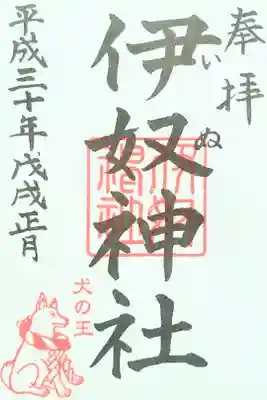 奉拝
伊奴神社
いぬ
平成三十年戊戌正月
犬の王